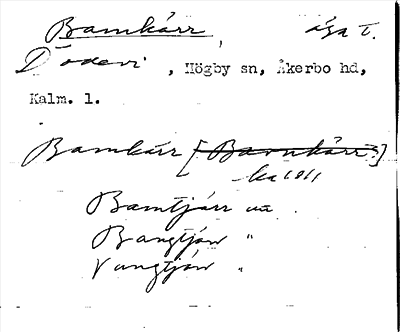 Bamkärr, äga t.
Dödevi, Högby sn, Åkerbo hd,
Kalm. l.
Bamkärr [Barnkärr?]
ka 1811
Bamtjärr ua.
Bangtjärr "
Vangtjärr "